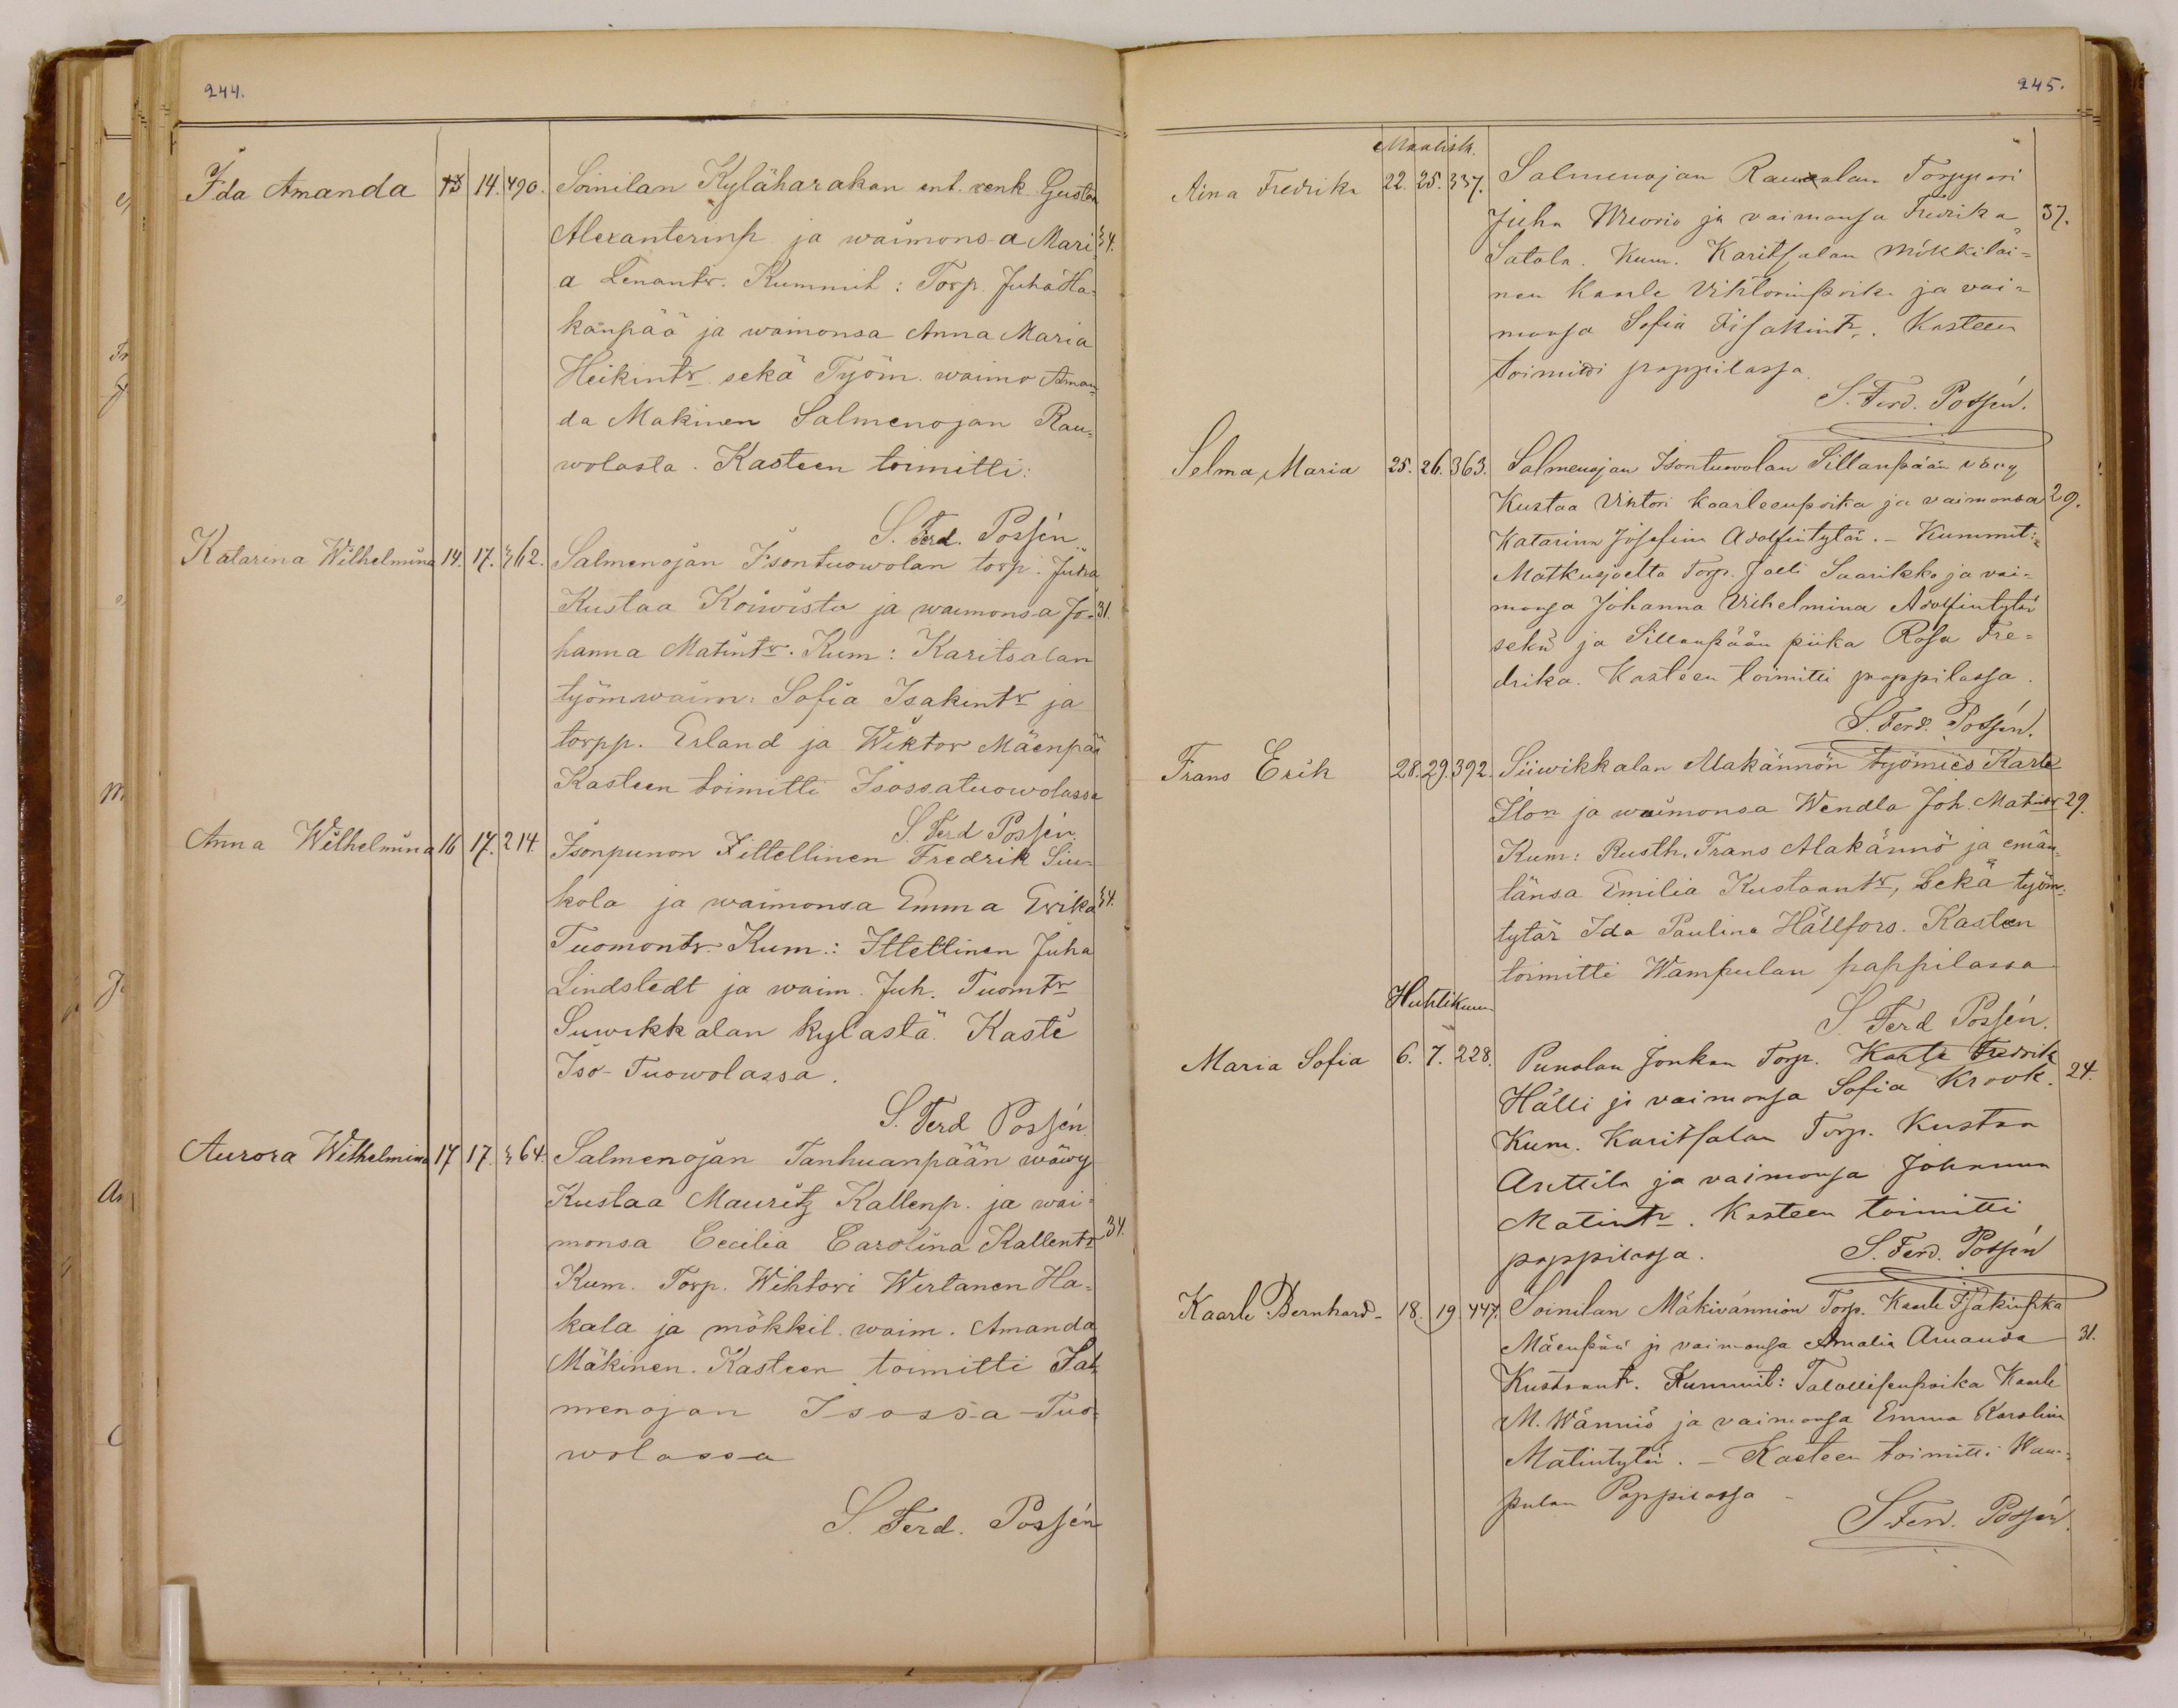 244.
Ida Amanda 13 14. 490. Soinilan Kyläharakan ent. renk. Gusta
Alexanterinp. ja waimonsa Mari= 34.
a Lenantr. Kummit: Torp. Juha Ha=
kanpää ja waimonsa Anna Maria
Heikintr. sekä Työm. waimo Aman=
da Makinen Salmenojan Rau=
wolasta. Kasteen toimitti:
S. Ferd. Possén.
Katarina Wilhelmina 14. 17. 362. Salmenojan Isontuowolan torp. Juha
Kustaa Koiwisto ja waimonsa Jo- 31.
hanna Matintr. Kum: Karitsalan
työmwaim: Sofia Isakintr ja
torpp. Erland ja Wiktor Mäenpää
Kasteen toimitti Isossatuowolassa
S. Ferd Possén.
Anna Wilhelmina 16 17. 214. Isonpunon Itellinen Fredrik Siu-
kola ja waimonsa Emma Erika 34.
Tuomontr. Kum.: Ittellinen Juha
Lindstedt ja waim. Juh. Tuomtr
Suwikkalan kylästä. Kaste
Iso-Tuowolassa.
S. Ferd Possén.
Aurora Wilhelmina 17 17. 364. Salmenojan Tanhuanpään wäwy
Kustaa Mauritz Kallenp. ja wai=
monsa Cecilia Carolina Kallentr 34.
Kum. Torp. Wihtori Wirtanen Ha=
kala ja mökkil. waim. Amanda
Mäkinen. Kasteen toimitti Sal
menojan Isossa-Tuo=
wolassa
S. Ferd. Possén
245.
Maalisk.
Aina Fredrika 22. 25. 337. Salmenojan Rauwolan Torppari
Juha Wuorio ja vaimonsa Fredrika 37.
Satala. Kum. Karitsalan mökkiläi=
nen Kaarle Vihtorinpoika ja vai=
monsa Sofia Iisakintr. Kasteen
toimitti pappilassa.
S. Ferd. Possén.
Selma Maria 25. 26. 363. Salmenojan Isontuovolan Sillanpään vävy
Kustaa Vihtori Kaarleenpoika ja vaimonsa 29.
Katarina Josefina Adolfintytär. - Kummit:
Matkusjoelta Torp. Joeli Saarikko ja vai=
monsa Johanna Vilhelmina Adolfintytär
sekä ja Sillanpään piika Rosa Fre=
drika. Kasteen toimitti pappilassa.
S. Ferd. Possén.
Frans Erik 28. 29. 392. Siiwikkalan Alakännön työmies Karle
Ilon ja waimonsa Wendla Joh. Matintr 29.
Kum: Rusth. Frans Alakännö ja emän=
tänsa Emilia Kustaantr, Sekä työm=
tytär Ida Paulina Hällfors. Kasteen
toimitti Wampulan pappilassa
S. Ferd Possén.
Huhtikuun
Maria Sofia 6. 7. 228. Punolan Jonkan Torp. Karle Fredrik
Hälli ja vaimonsa Sofia Krook. 24.
Kum. Karitsalan Torp. Kustaa
Anttila ja vaimonsa Johanna
Matintr. Kasteen toimitti
pappilassa. S. Ferd. Possén
Kaarle Bernhard - 18. 19. 447. Soinilan Mäkivännion Torp. Kaarle Isakinpka
Mäenpää ja vaimonsa Amalia Amanda 31.
Kustaant. Kummit: Talollisenpoika Kaarle
M. Wänniö ja vaimonsa Emma Karolina
Matintytär. - Kasteen toimitti Wam=
pulan Pappilassa -
S. Ferd. Possén.